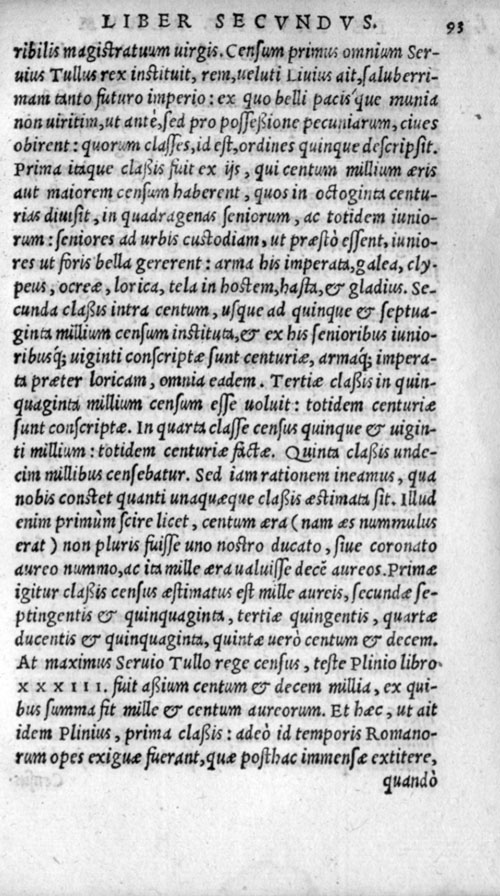 LIBER SECVNDVS. 93
ribilis magistratuum uirgis. Censum primus omnium Ser-
uius Tullus rex instituit, rem, ueluti Liuius ait, saluberri-
mam tanto futuro imperio: ex quo belli pacis que munia
non uiritim, ut antè, sed pro possessione pecuniarum, ciues
obirent: quorum classes, id est, ordines quinque descripsit.
Prima itaque classis fuit ex ijs, qui centum millium æris
aut maiorem censum haberent, quos in octoginta centu-
rias diuisit, in quadragenas seniorum, ac totidem iunio-
rum: seniores ad urbis custodiam, ut præstò essent, iunio-
res ut foris bella gererent: arma his imperata, galea, cly-
peus, ocreæ, lorica, tela in hostem, hasta, & gladius. Se-
cunda classis intra centum, usque ad quinque & septua-
ginta millium censum instituta, & ex his senioribus iunio-
ribusq; uiginti conscriptæ sunt centuriæ, armaq; impera-
ta præter loricam, omnia eadem. Tertiæ classis in quin-
quaginta millium censum esse uoluit: totidem centuriæ
sunt conscriptæ. In quarta classe census quinque & uigin-
ti millium: totidem centuriæ factæ. Quinta classis unde-
cim millibus censebatur. Sed iam rationem ineamus, qua
nobis constet quanti unaquæque classis æstimata sit. Illud
enim primùm scire licet, centum æra (nam æs nummulus
erat) non pluris fuisse uno nostro ducato, siue coronato
aureo nummo, ac ita mille æra ualuisse decẽ aureos. Primæ
igitur classis census æstimatus est mille aureis, secundæ se-
ptingentis & quinquaginta, tertiæ quingentis, quartæ
ducentis & quinquaginta, quintæ uerò centum & decem.
At maximus Seruio Tullo rege census, teste Plinio libro
XXXIII. fuit assium centum & decem millia, ex qui-
bus summa fit mille & centum aureorum. Et hæc, ut ait
idem Plinius, prima classis: adeò id temporis Romano-
rum opes exiguæ fuerant, quæ posthac immensæ extitere,
quandò